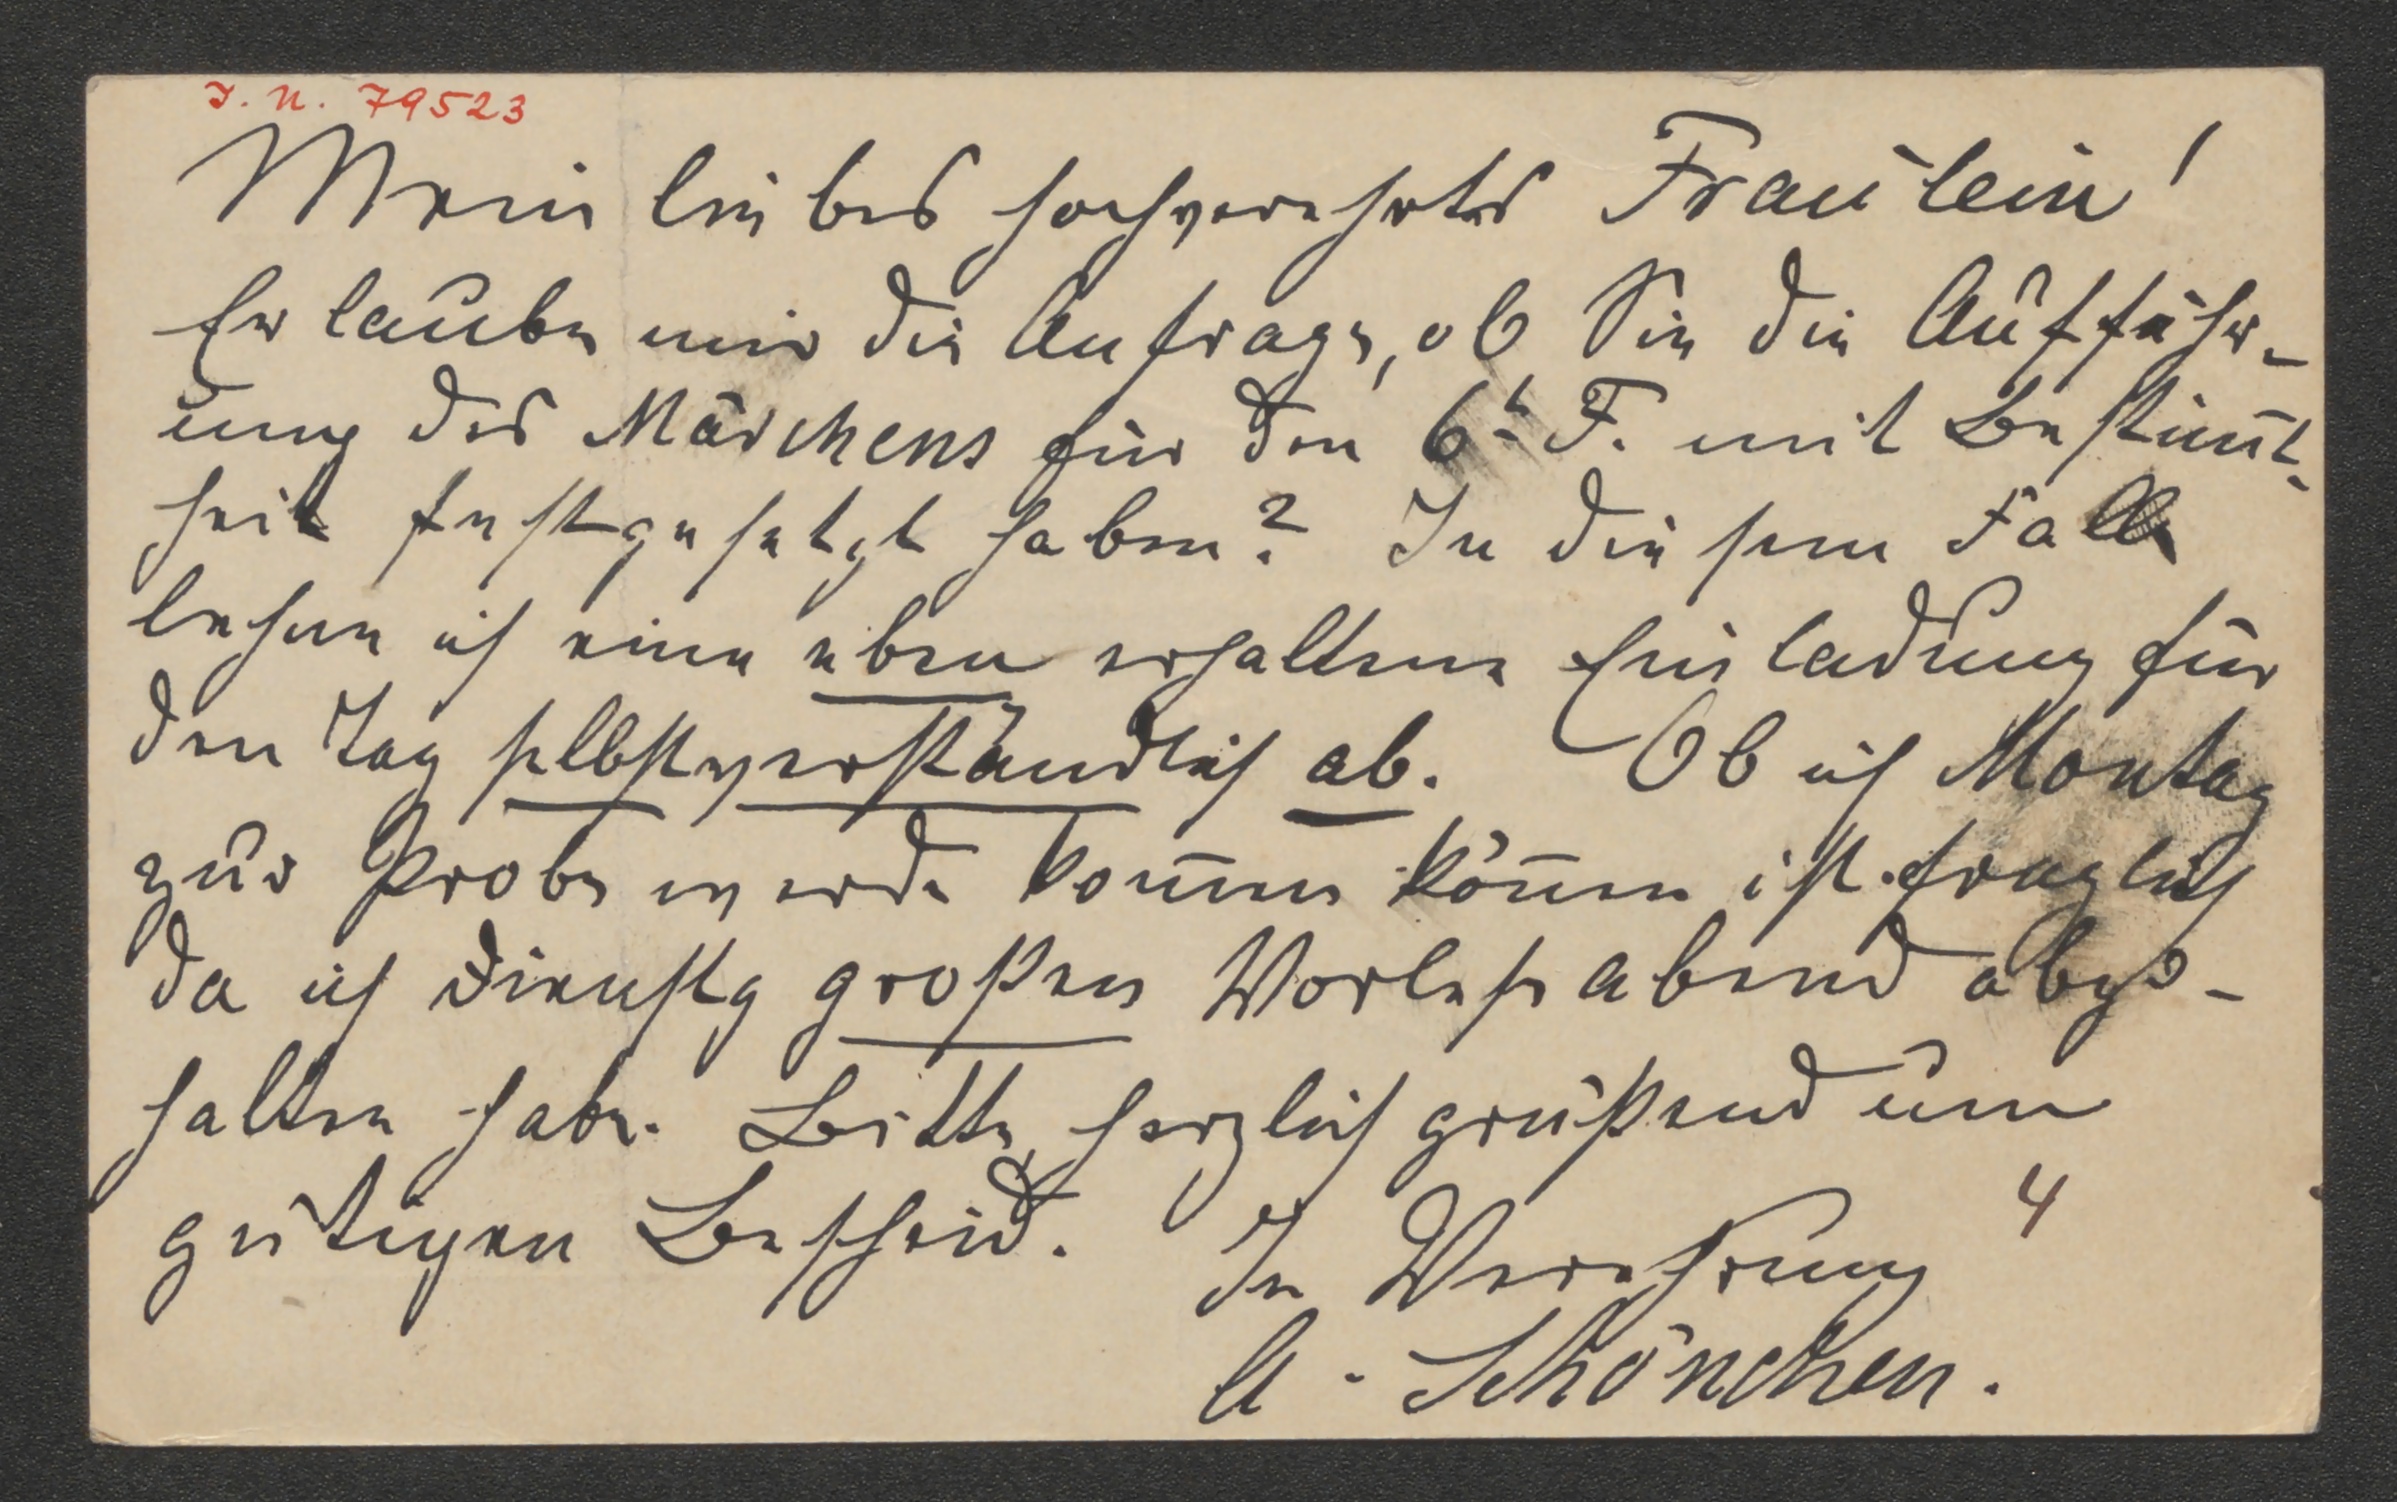 I. N. 79523
Mein liebes hochverehrtes Fräulein!
Erlaube mir die Anfrage, ob Sie die Aufführ-
ung des Märchens für den 6t F. mit Bestim̅t-
heit festgesetzt haben? In diesem Falle
lehne ich eine eben erhaltene Einladung für
den Tag selbstverständlich ab. Ob ich Montag
zur Probe werde kom̅en kön̅en ist fraglich
da ich Dienstg großen Vorleseabend abzu-
halten habe. Bitte, herzlich grüßend um
gütigen Bescheid. In Verehrung
4
A. Schönchen.